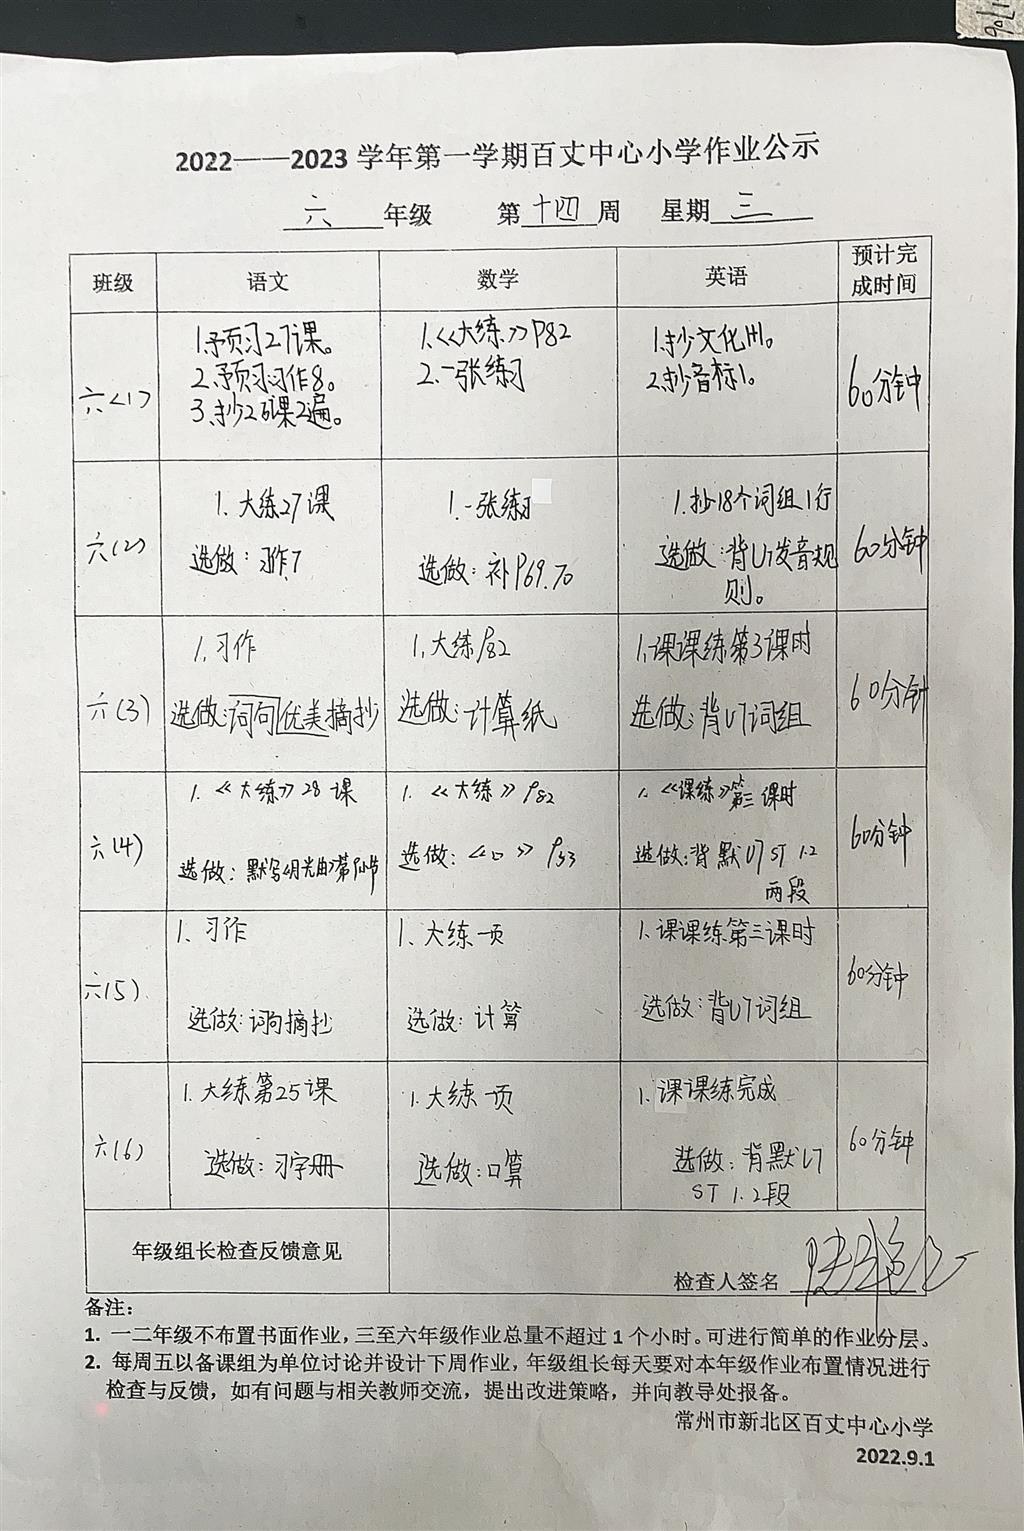 2022——2023 学年第一学期百丈中心小学作业公示
六 年级 第 十四 周 星期 三
班级 语文 数学 英语 预计完成时间
六(1)
1.预习27课。
2.预习习作8。
3.抄26课2遍。
1.《大练》P82
2.一张练习
1.抄文化
2.抄音标1。
60分钟
六(2)
1. 大练27课
选做：习作7
1.一张练习
选做：补P69.70
1.抄18个词组1行
选做：背U7发音规
则。
60分钟
六(3)
1.习作
选做:词句优美摘抄
1.大练P82
选做:计算纸
1.课课练第3课时
选做:背U7词组
60分钟
六(4)
1.《大练》28课
选做：默写《月光曲》第
1.《大练》P82
选做：《口》P53
1.《课练》第三课时
选做:背默U7 ST 1.2
两段
60分钟
六(5)
1. 习作
选做:词句摘抄
1.大练一页
选做：计算
1.课课练第三课时
选做:背U7词组
60分钟
六(6)
1.大练第25课
选做：习字册
1.大练一页
选做：口算
1.课课练完成
选做：背默U7
ST 1.2段
60分钟
年级组长检查反馈意见
检查人签名
备注：
1. 一二年级不布置书面作业，三至六年级作业总量不超过1个小时。可进行简单的作业分层。
2. 每周五以备课组为单位讨论并设计下周作业，年级组长每天要对本年级作业布置情况进行
检查与反馈，如有问题与相关教师交流，提出改进策略，并向教导处报备。
常州市新北区百丈中心小学
2022.9.1